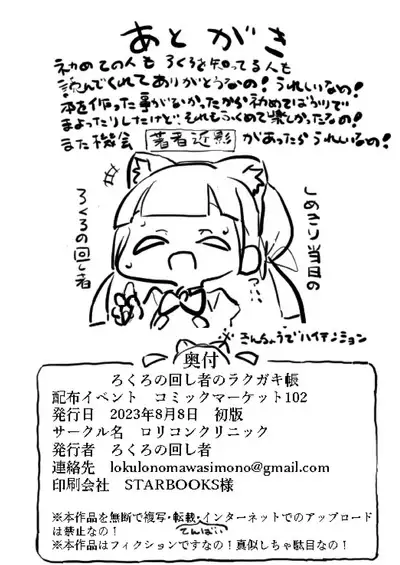 あとがき
初めての人も ろくろを知ってる人も
読んでくれてありがとうなの！うれしいなの！
本を作った事がなかったから初めてばかりで
まよったりしたけど、それもふくめて楽しかったなの！
また機会 があったらうれしいなの！
著者近影
しめきり当日の
ろくろの回し者
きんちょうでハイテンション
奥付
ろくろの回し者のラクガキ帳
配布イベント コミックマーケット102
発行日 2023年8月8日 初版
サークル名 ロリコンクリニック
発行者 ろくろの回し者
連絡先 lokulonomawasimono@gmail.com
印刷会社 STARBOOKS様
※本作品を無断で複写・転載・インターネットでのアップロード
てんばい
は禁止なの！
※本作品はフィクションですなの！真似しちゃ駄目なの！